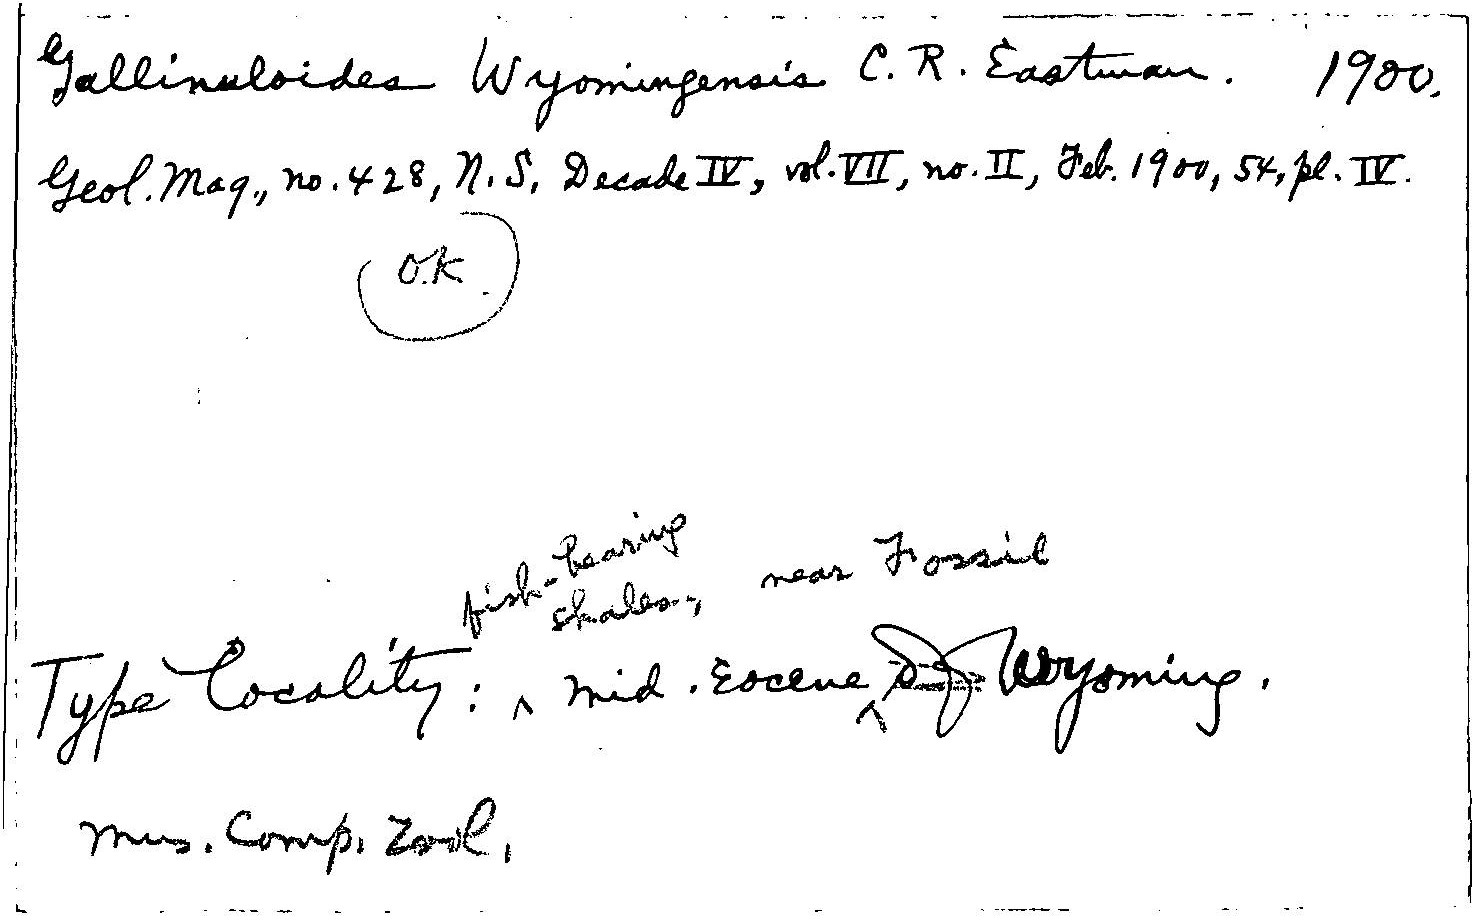 Gallinuloides Wyomingensis C. R. Eastman. 1900.
Geol. Mag., no. 428, N. S. Decade IV, vol. VII, no. II, Feb. 1900, 54, pl. IV.
O.K.
fish-bearing
shales, near Fossil
Type Locality: ^ Mid. Eocene ^ of Wyoming.
Mus. Comp. Zool.